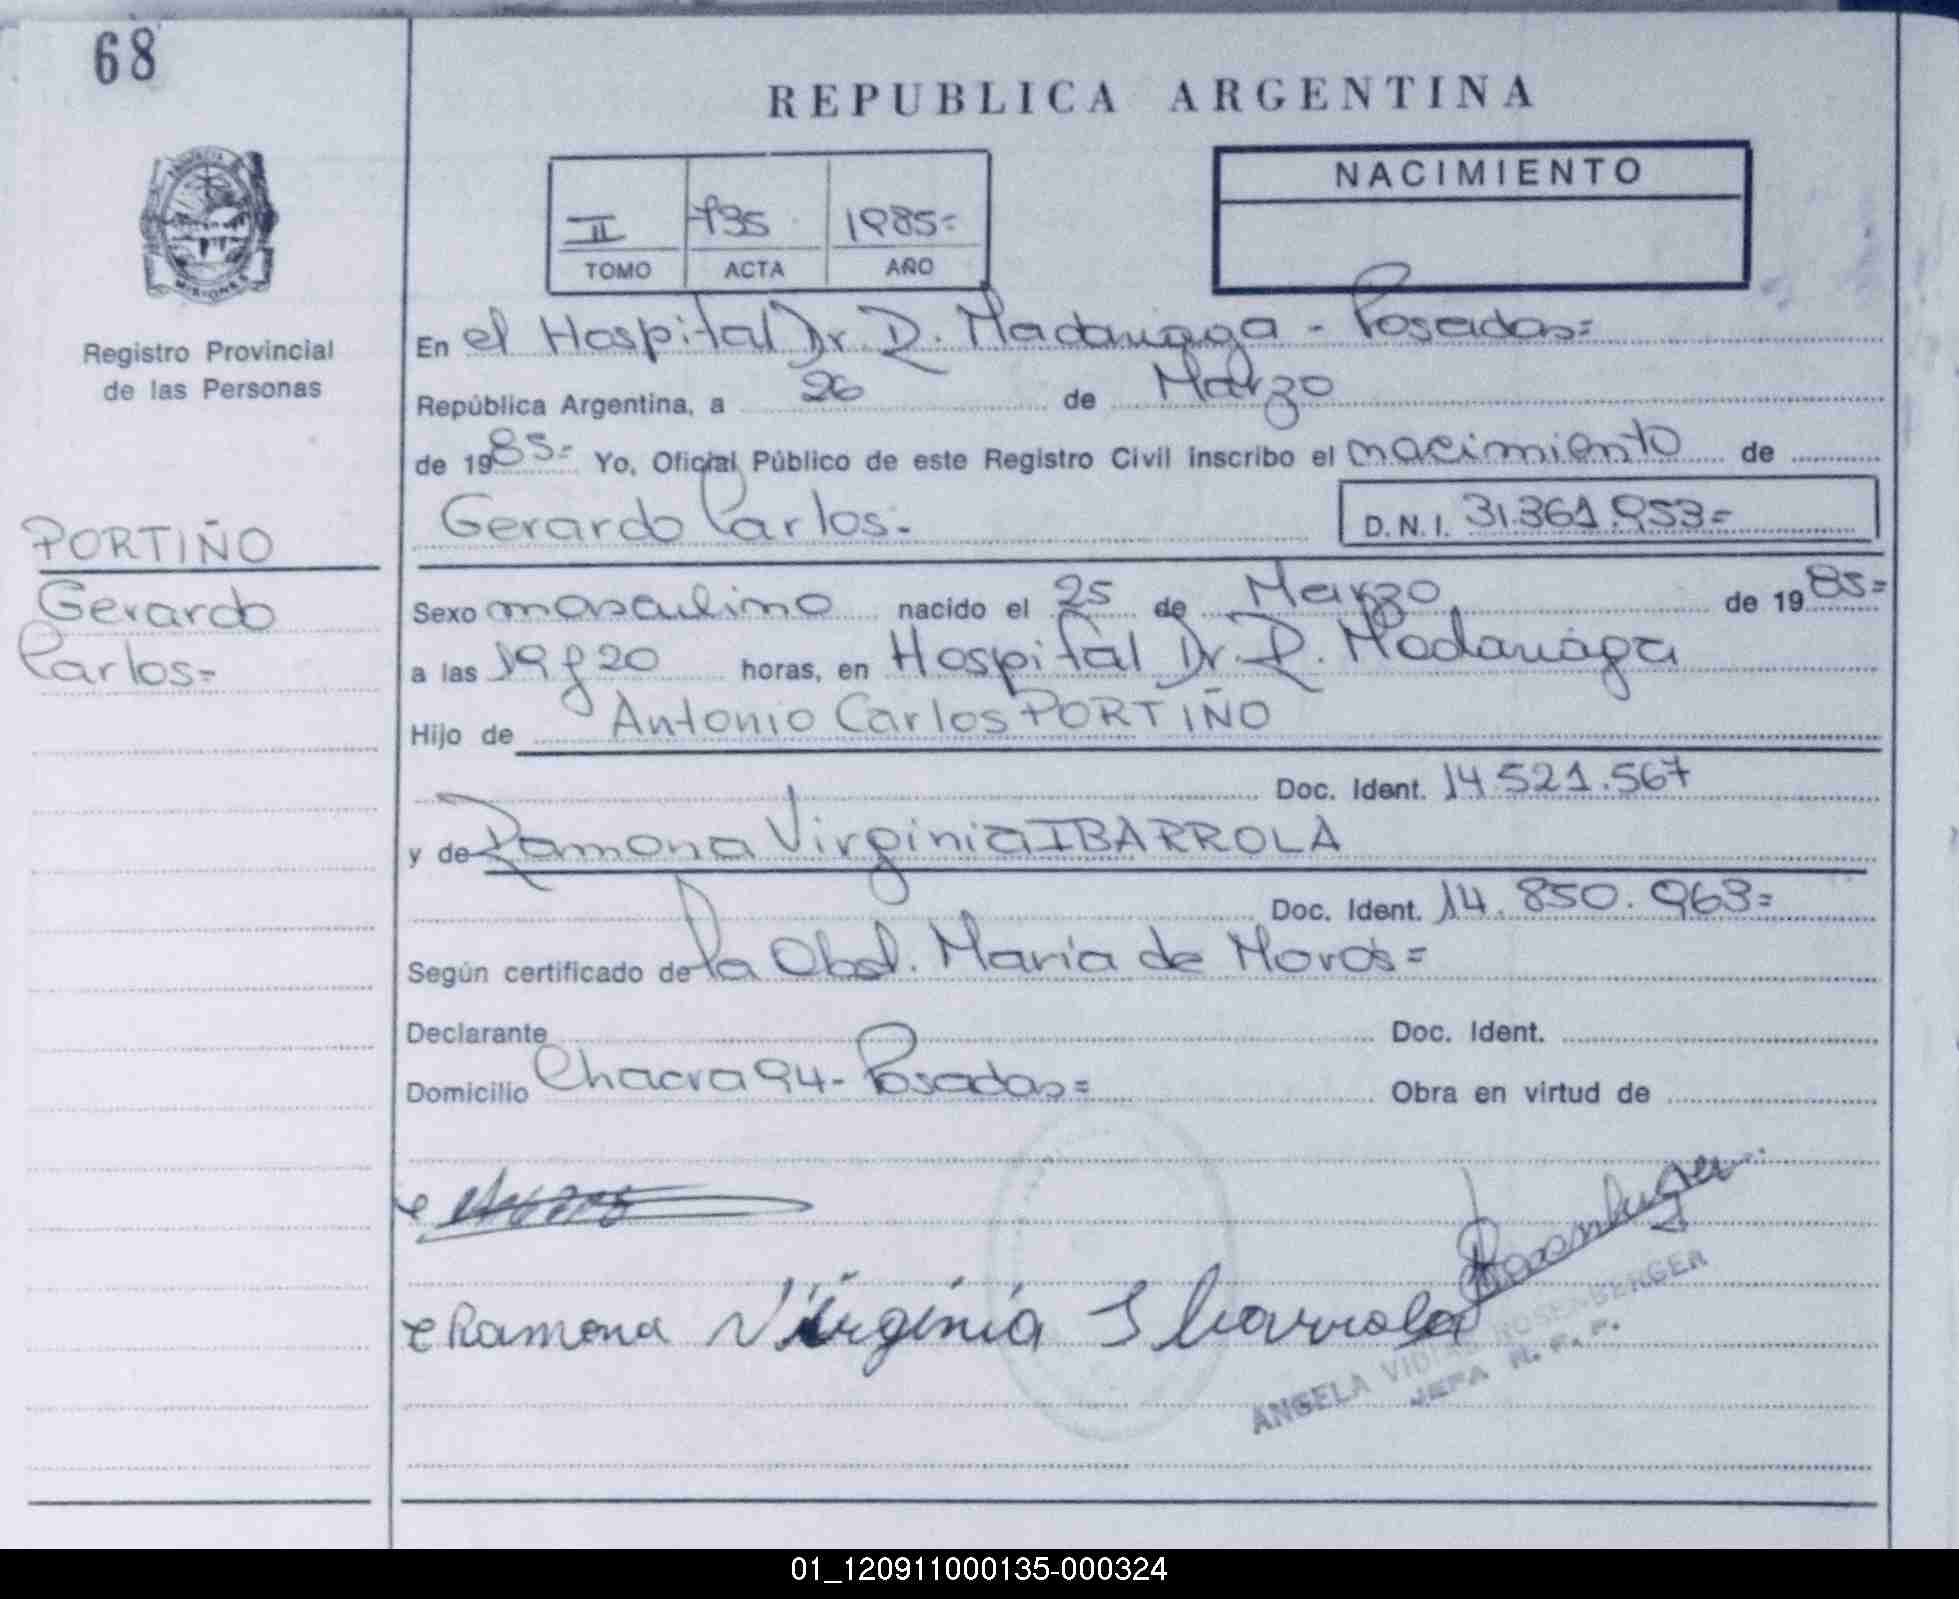 68
REPUBLICA ARGENTINA
NACIMIENTO
II 735 1985=
TOMO ACTA AÑO
MISIONES
Registro Provincial
de las Personas
En el Hospital Dr. R. Madariaga - Posadas=
República Argentina, a 26 de Marzo
de 1985= Yo, Oficial Público de este Registro Civil inscribo el nacimiento de
Gerardo Carlos=
D.N.I. 31.361.953=
PORTIÑO
Gerardo
Carlos=
Sexo masculino nacido el 25 de Marzo de 1985=
a las 19 y 20 horas, en Hospital Dr. R. Madariaga
Hijo de Antonio Carlos PORTIÑO
Doc. Ident. 14.521.567
y de Ramona Virginia IBARROLA
Doc. Ident. 14.850.963=
Según certificado de la Obst. María de Moros=
Declarante Doc. Ident.
Domicilio Chacra 94- Posadas= Obra en virtud de
Ramona Virginia Ibarrola
ANGELA ROSENBERGER
JEFA
01_120911000135-000324